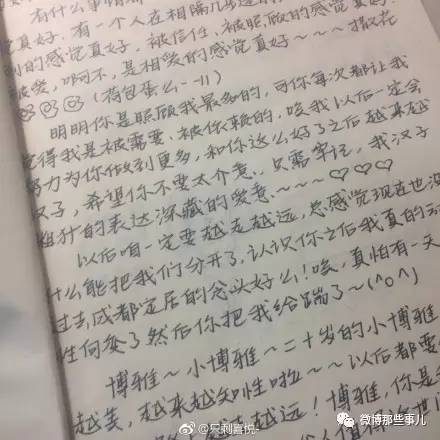 有什么事情
真好.有一个人在相隔几步远
到的感觉真好,被信任,被照顾的感觉真好.
被爱,啊不,是相爱的感觉真好~~~撒花
(荷包蛋么=11)
明明你是照顾我最多的,可你每次都让我
觉得我是被需要.被依赖的,唉我以后一定会
努力为你做到更多,和你这么好了之后越来越
汉子,希望你不要太介意..只需牢记,我汉子
粗犷的表达深藏的爱意~~~♡♡♡
以后咱一定要越走越远,总感觉现在也没
什么能把我们分开了.认识你之后我真的动
过去成都定居的念头好么!唉,真怕有一天
性向变了然后你把我给踹了~(^o^)
博雅~小博雅~二十岁的小博雅
越美,越来越知性啦~~以后都要
越远!博雅,你是
@只剩喜悦-
微博那些事儿